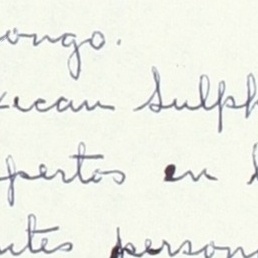 ongo.
xican Sulph
pertos en l
ntes person